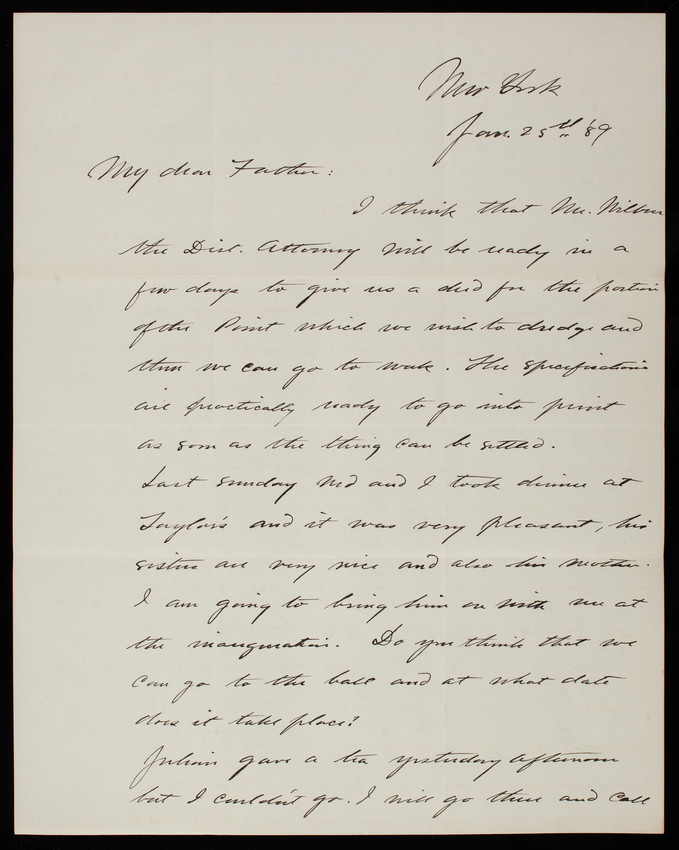 New York
Jan. 25th '89
My dear Father:
I think that Mr. Wilber
the Dist. Attorney will be ready in a
few days to give us a deed for the portion
of the Point which we wish to dredge and
then we can go to work. The specifications
are practically ready to go into print
as soon as the thing can be settled.
Last Sunday Ned and I took dinner at
Taylor's and it was very pleasant, his
sisters are very nice and also his mother.
I am going to bring him on with me at
the inauguration. Do you think that we
can go to the ball and at what date
does it take place?
Julian gave a tea yesterday afternoon
but I couldn't go. I will go there and call